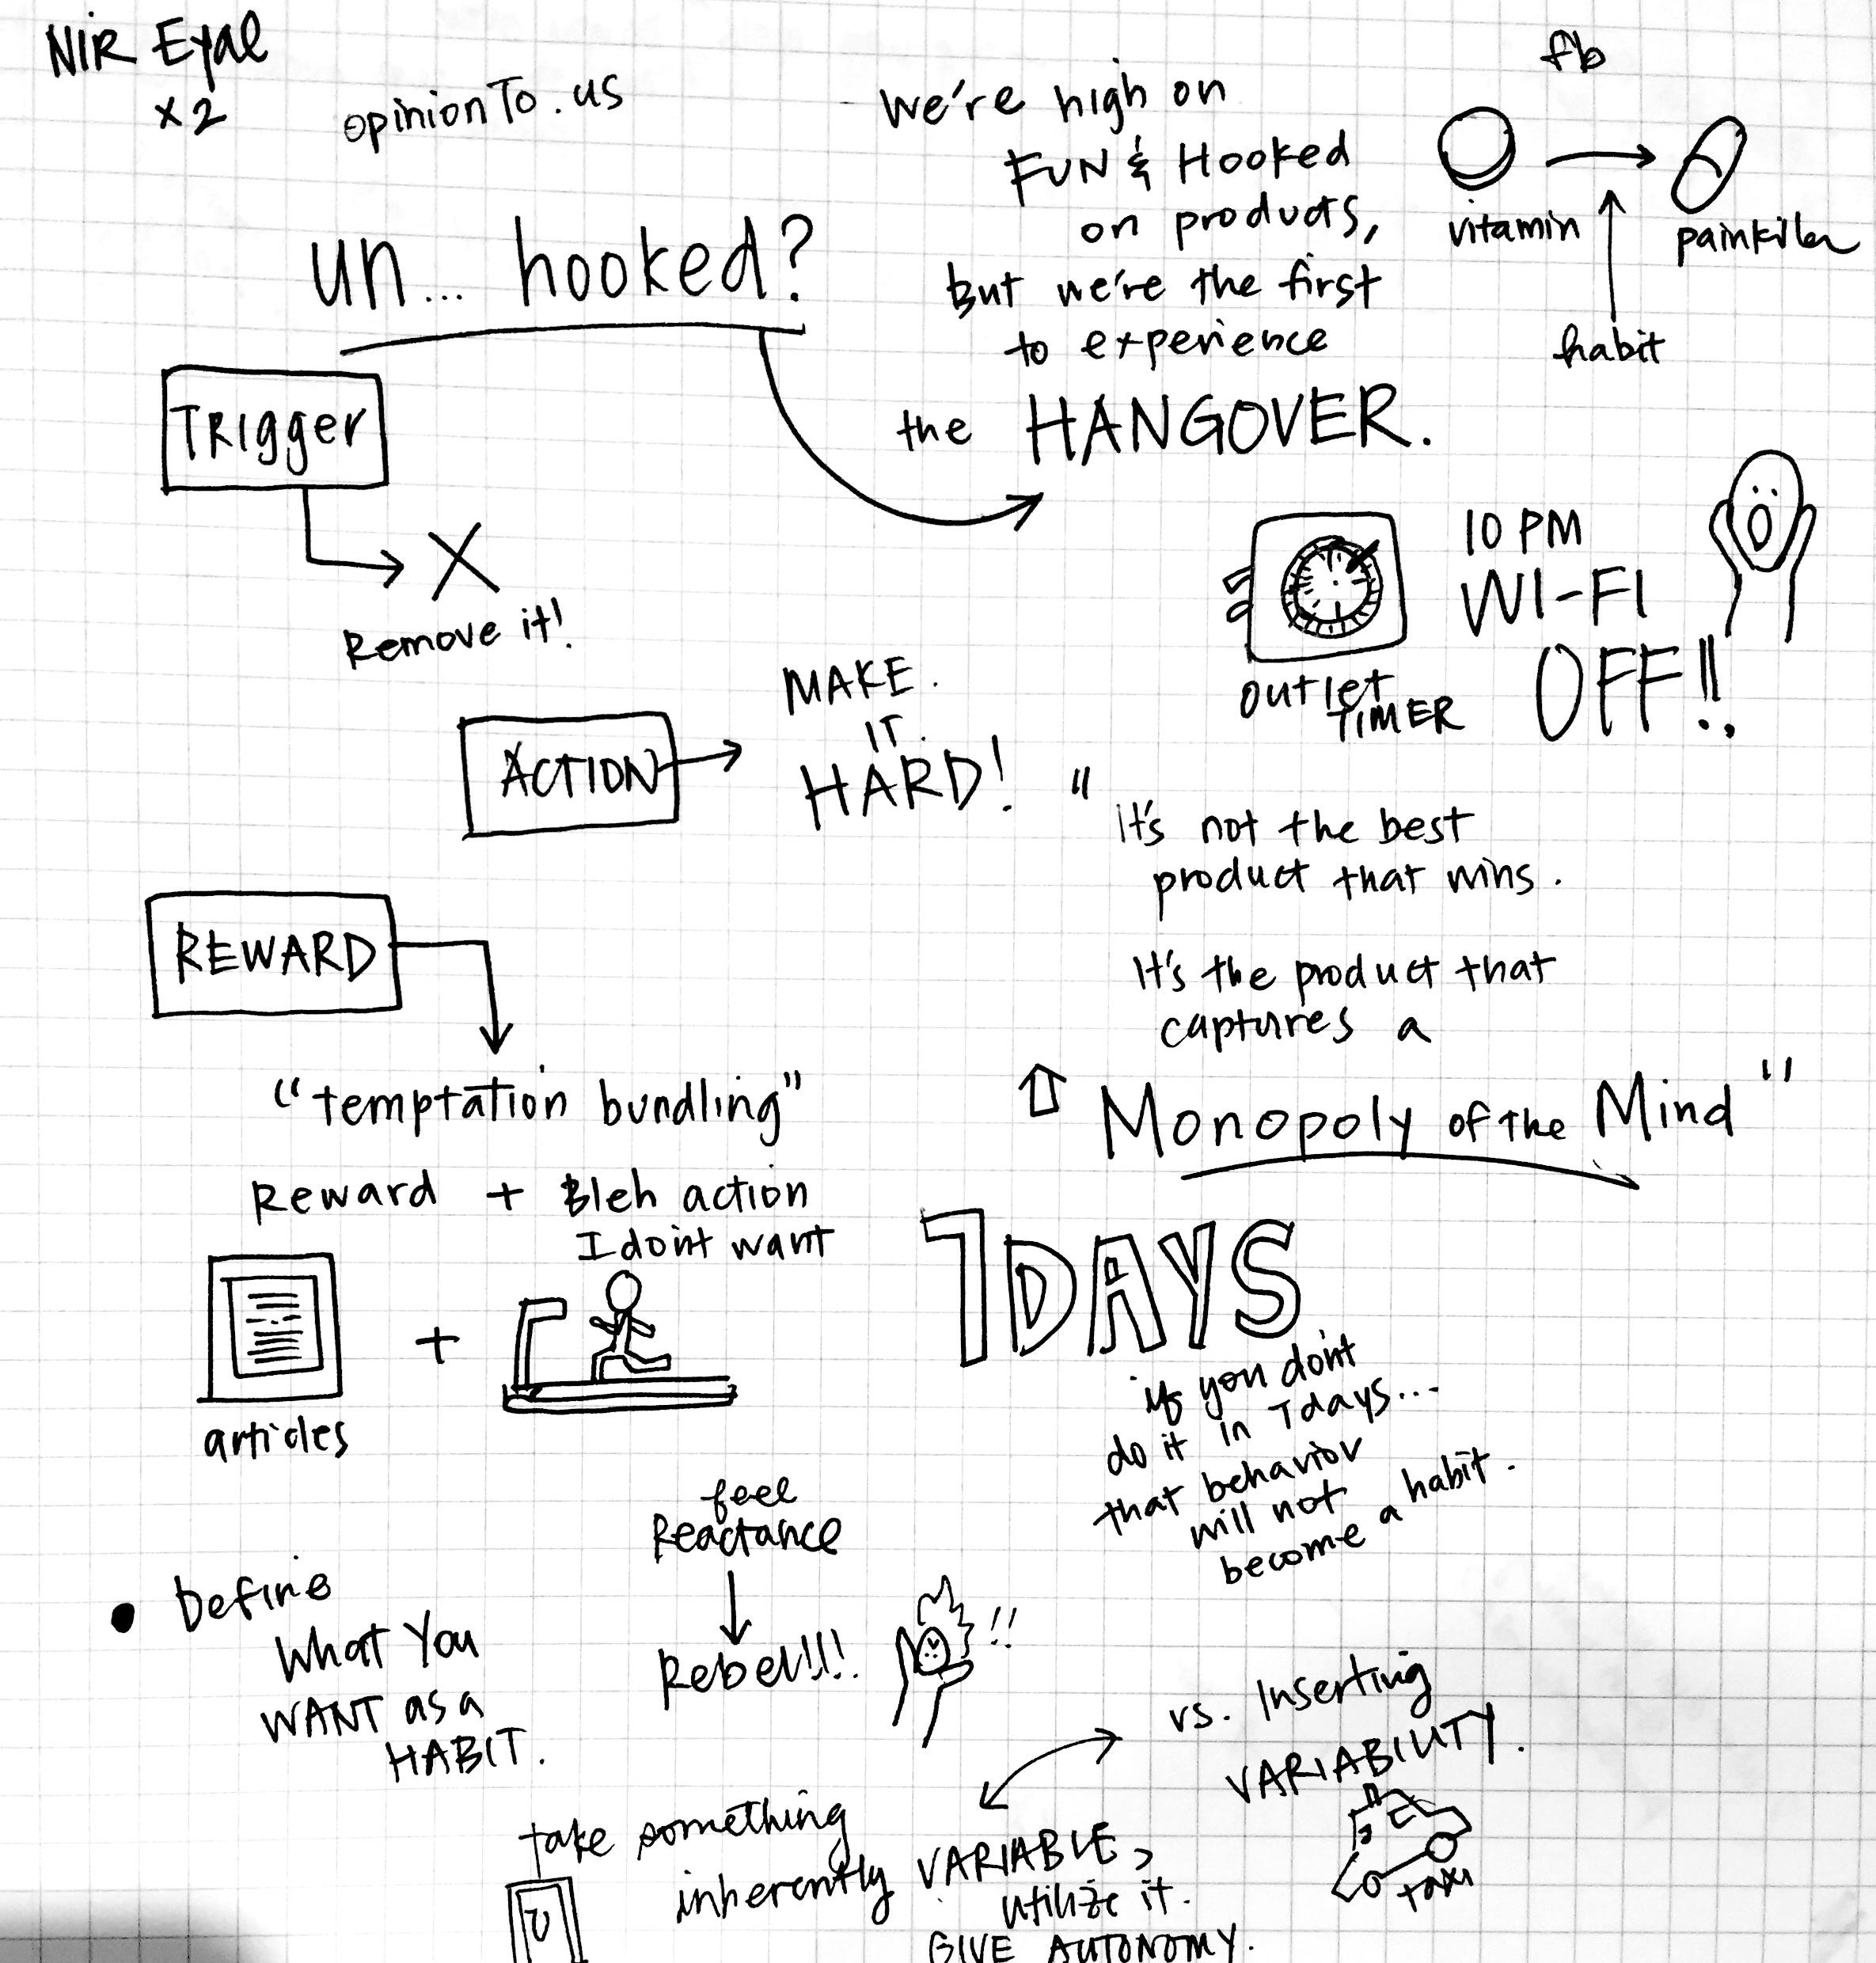 NIR Eyal
x2
opinionTo.us
un... hooked?
we're high on
FUN & Hooked
on products,
but we're the first
to experience
the HANGOVER.
fb
vitamin
painkiller
habit
TRIgger
Remove it!
10 PM
WI-FI
OFF!!
outlet
TIMER
ACTION
MAKE.
IT.
HARD!
"
it's not the best
product that wins.
It's the product that
captures a
Monopoly of the Mind"
REWARD
"temptation bundling"
Reward + Bleh action
I don't want
+
articles
7 DAYS
if you don't
do it in 7days...
that behavior
will not
become a habit.
feel
Reactance
Rebel!!!!
!!
• Define
What You
WANT as a
HABIT.
vs. Inserting
VARIABILITY.
taxi
take something
inherently VARIABLE,
utilize it.
GIVE AUTONOMY.
U